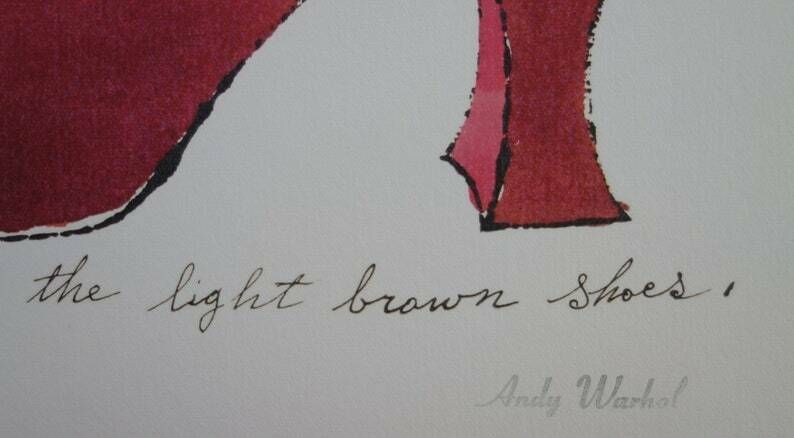 the light brown shoes.
Andy Warhol